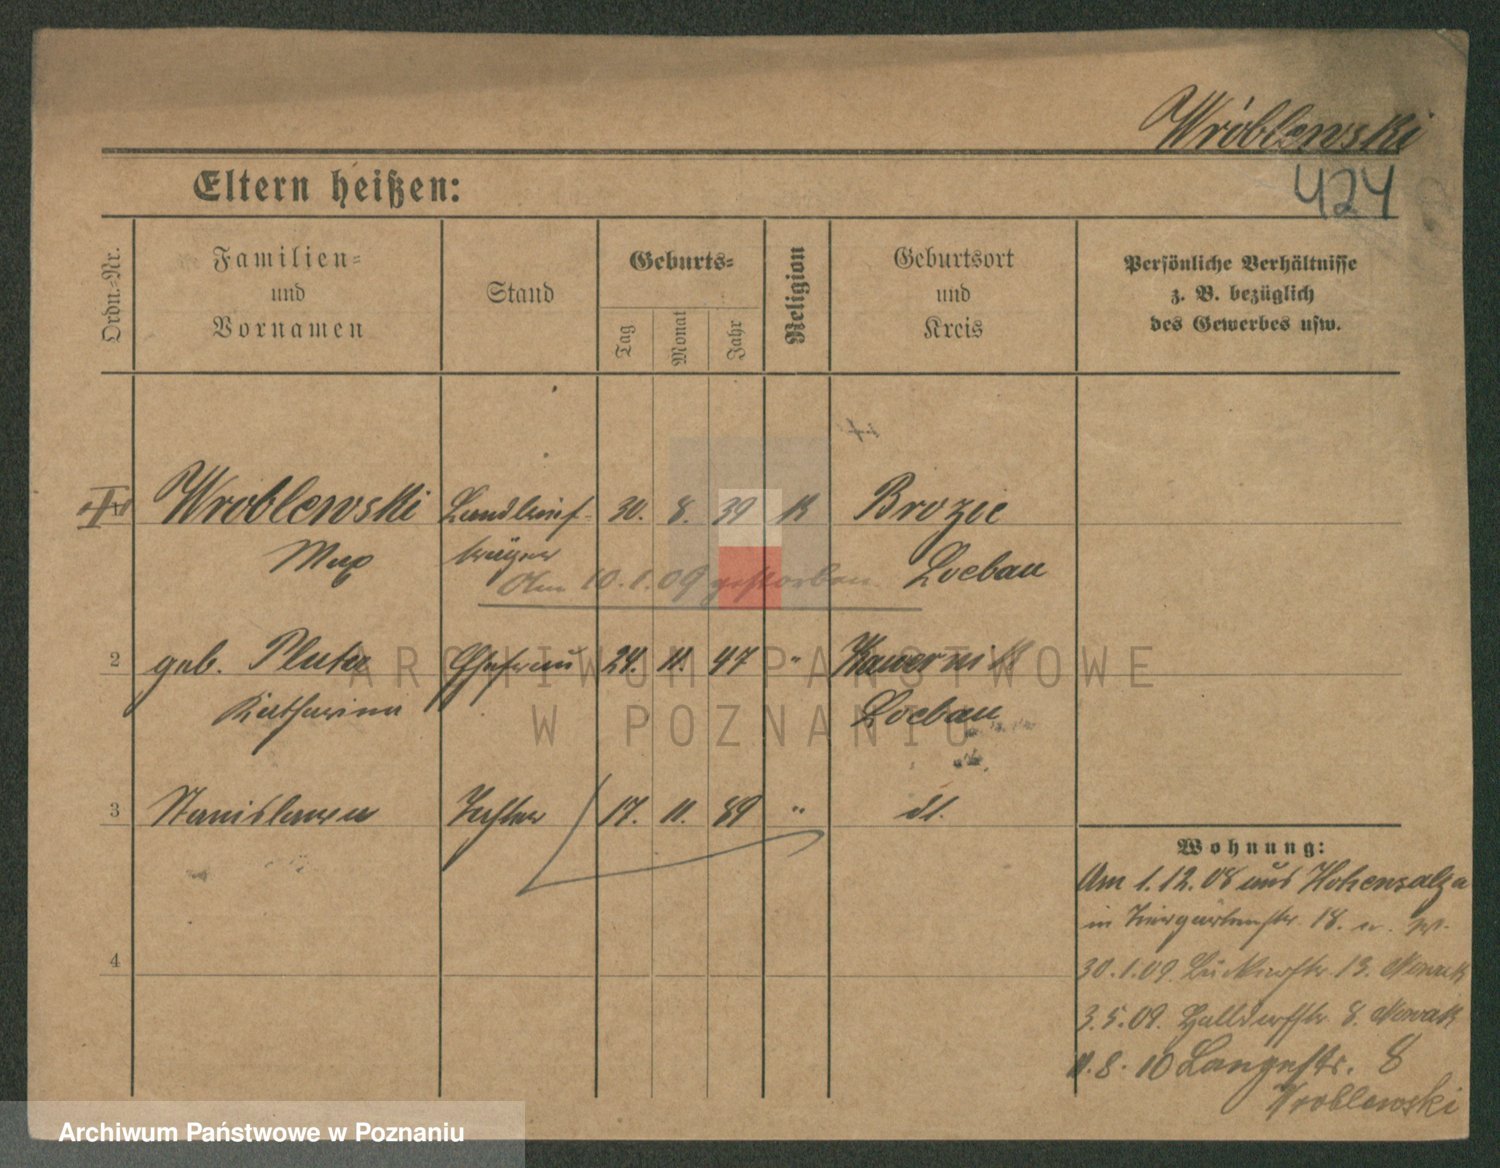 Wróblewski
Eltern heißen:
424
Ordn.-Nr.
Familien-
und
Vornamen
Stand
Geburts-
Tag
Monat
Jahr
Religion
Geburtsort
und
Kreis
Persönliche Verhältnisse
z. B. bezüglich
des Gewerbes usw.
Wroblewski Landbrief- 30. 8. 39 K Brozie
Max träger Loebau
Am 10.1.09 gestorben
2 geb. Pluta Ehefrau 24. 11. 47 " Kauernik
Katharina Loebau
ARCHIWUM PAŃSTWOWE
W POZNANIU
3 Stanislawa Tochter 17. 11. 89 " dt.
4
Wohnung:
Am 1.12.08 aus Hohensalza
in Tiergartenstr 18.
30.1.09 13. Nowak
3.5.09. 8. Nowak
11.8.10 Langestr. 8
Wroblewski
Archiwum Państwowe w Poznaniu